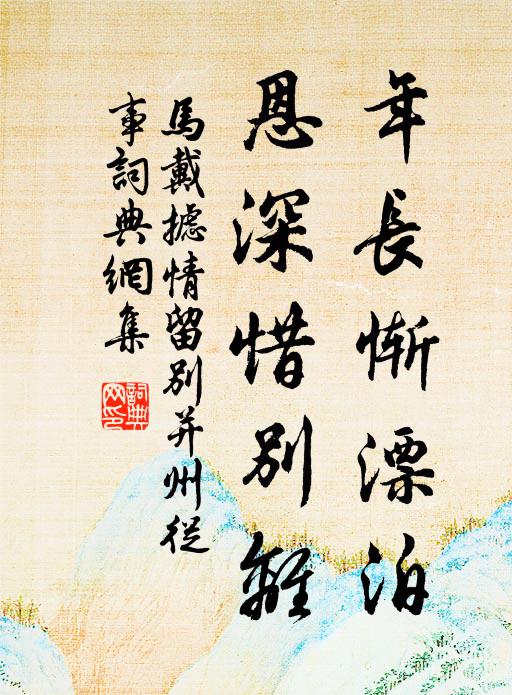 年長慚漂泊
恩深惜別離
馬戴攄情留別并州從
事詞典網集
詞典
网印